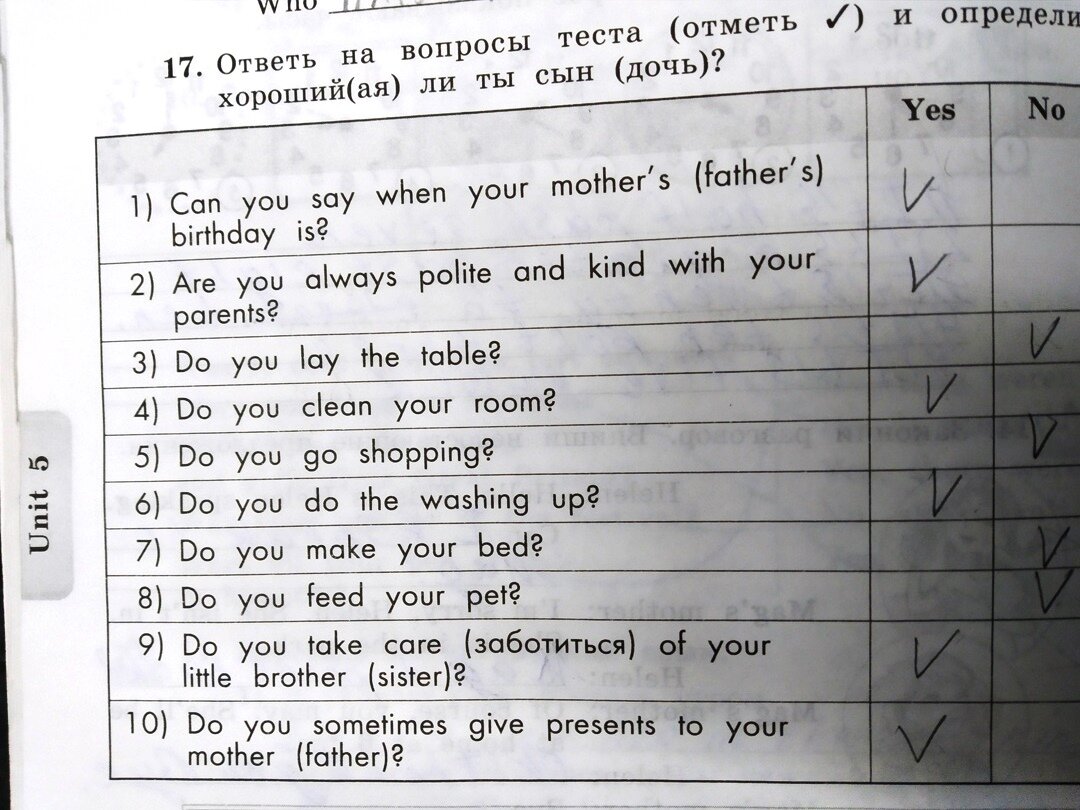 Who
17. Ответь на вопросы теста (отметь ✓) и определи
хороший(ая) ли ты сын (дочь)?
Yes No
1) Can you say when your mother's (father's)
birthday is? ✓
2) Are you always polite and kind with your
parents? ✓
3) Do you lay the table? ✓
4) Do you clean your room? ✓
5) Do you go shopping? ✓
6) Do you do the washing up? ✓
7) Do you make your bed? ✓
8) Do you feed your pet? ✓
9) Do you take care (заботиться) of your
little brother (sister)? ✓
10) Do you sometimes give presents to your
mother (father)? ✓
Unit 5